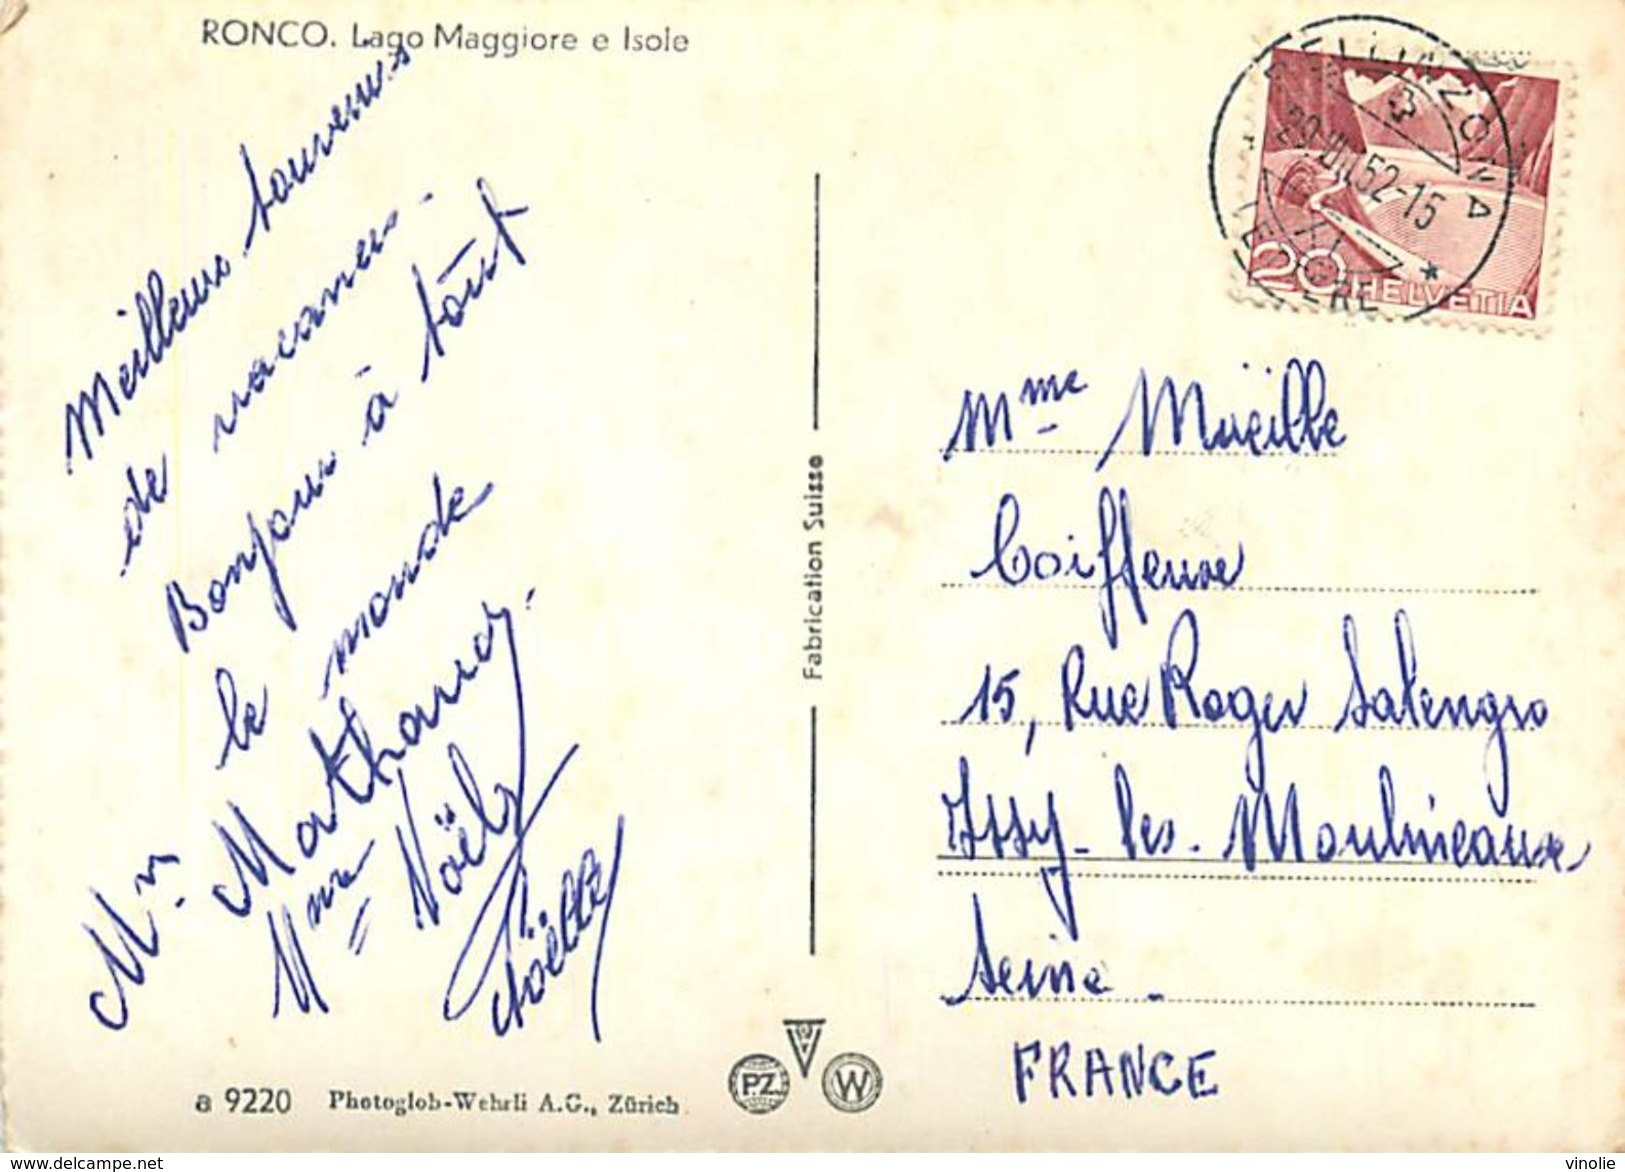 RONCO. Lago Maggiore e Isole
Meilleurs souvenirs
de vacances.
Bonjour à tout
le monde
Mr.
Mme Noël
Noëlle
BELLINZONA
3
29.VIII.52-15
20 HELVETIA
Fabrication Suisse
Mme Mireille
Coiffeuse
15, Rue Roger Salengro
Issy-les-Moulineaux
Seine.
FRANCE
a 9220 Photoglob-Wehrli A.G., Zürich
P.Z.
W
Delcampe.net
vinolie